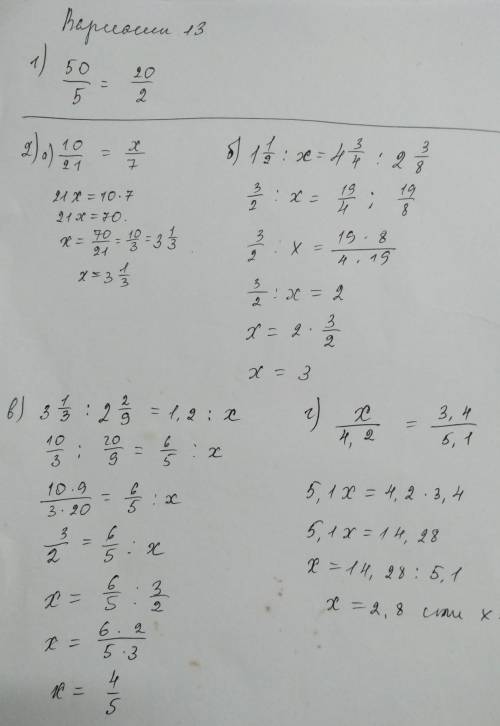 Вариант 13
1) 50/5 = 20/2
2) а) 10/21 = x/7
21x = 10·7
21x = 70.
x = 70/21 = 10/3 = 3 1/3
x = 3 1/3
б) 1 1/2 : x = 4 3/4 : 2 3/8
3/2 : x = 19/4 ; 19/8
3/2 : x = 19·8/4·19
3/2 : x = 2
x = 2 · 3/2
x = 3
в) 3 1/3 : 2 2/9 = 1,2 : x
10/3 ; 20/9 = 6/5 : x
10·9/3·20 = 6/5 : x
3/2 = 6/5 : x
x = 6/5 : 3/2
x = 6·2/5·3
x = 4/5
г) x/4,2 = 3,4/5,1
5,1x = 4,2·3,4
5,1x = 14,28
x = 14,28 : 5,1
x = 2,8 или x